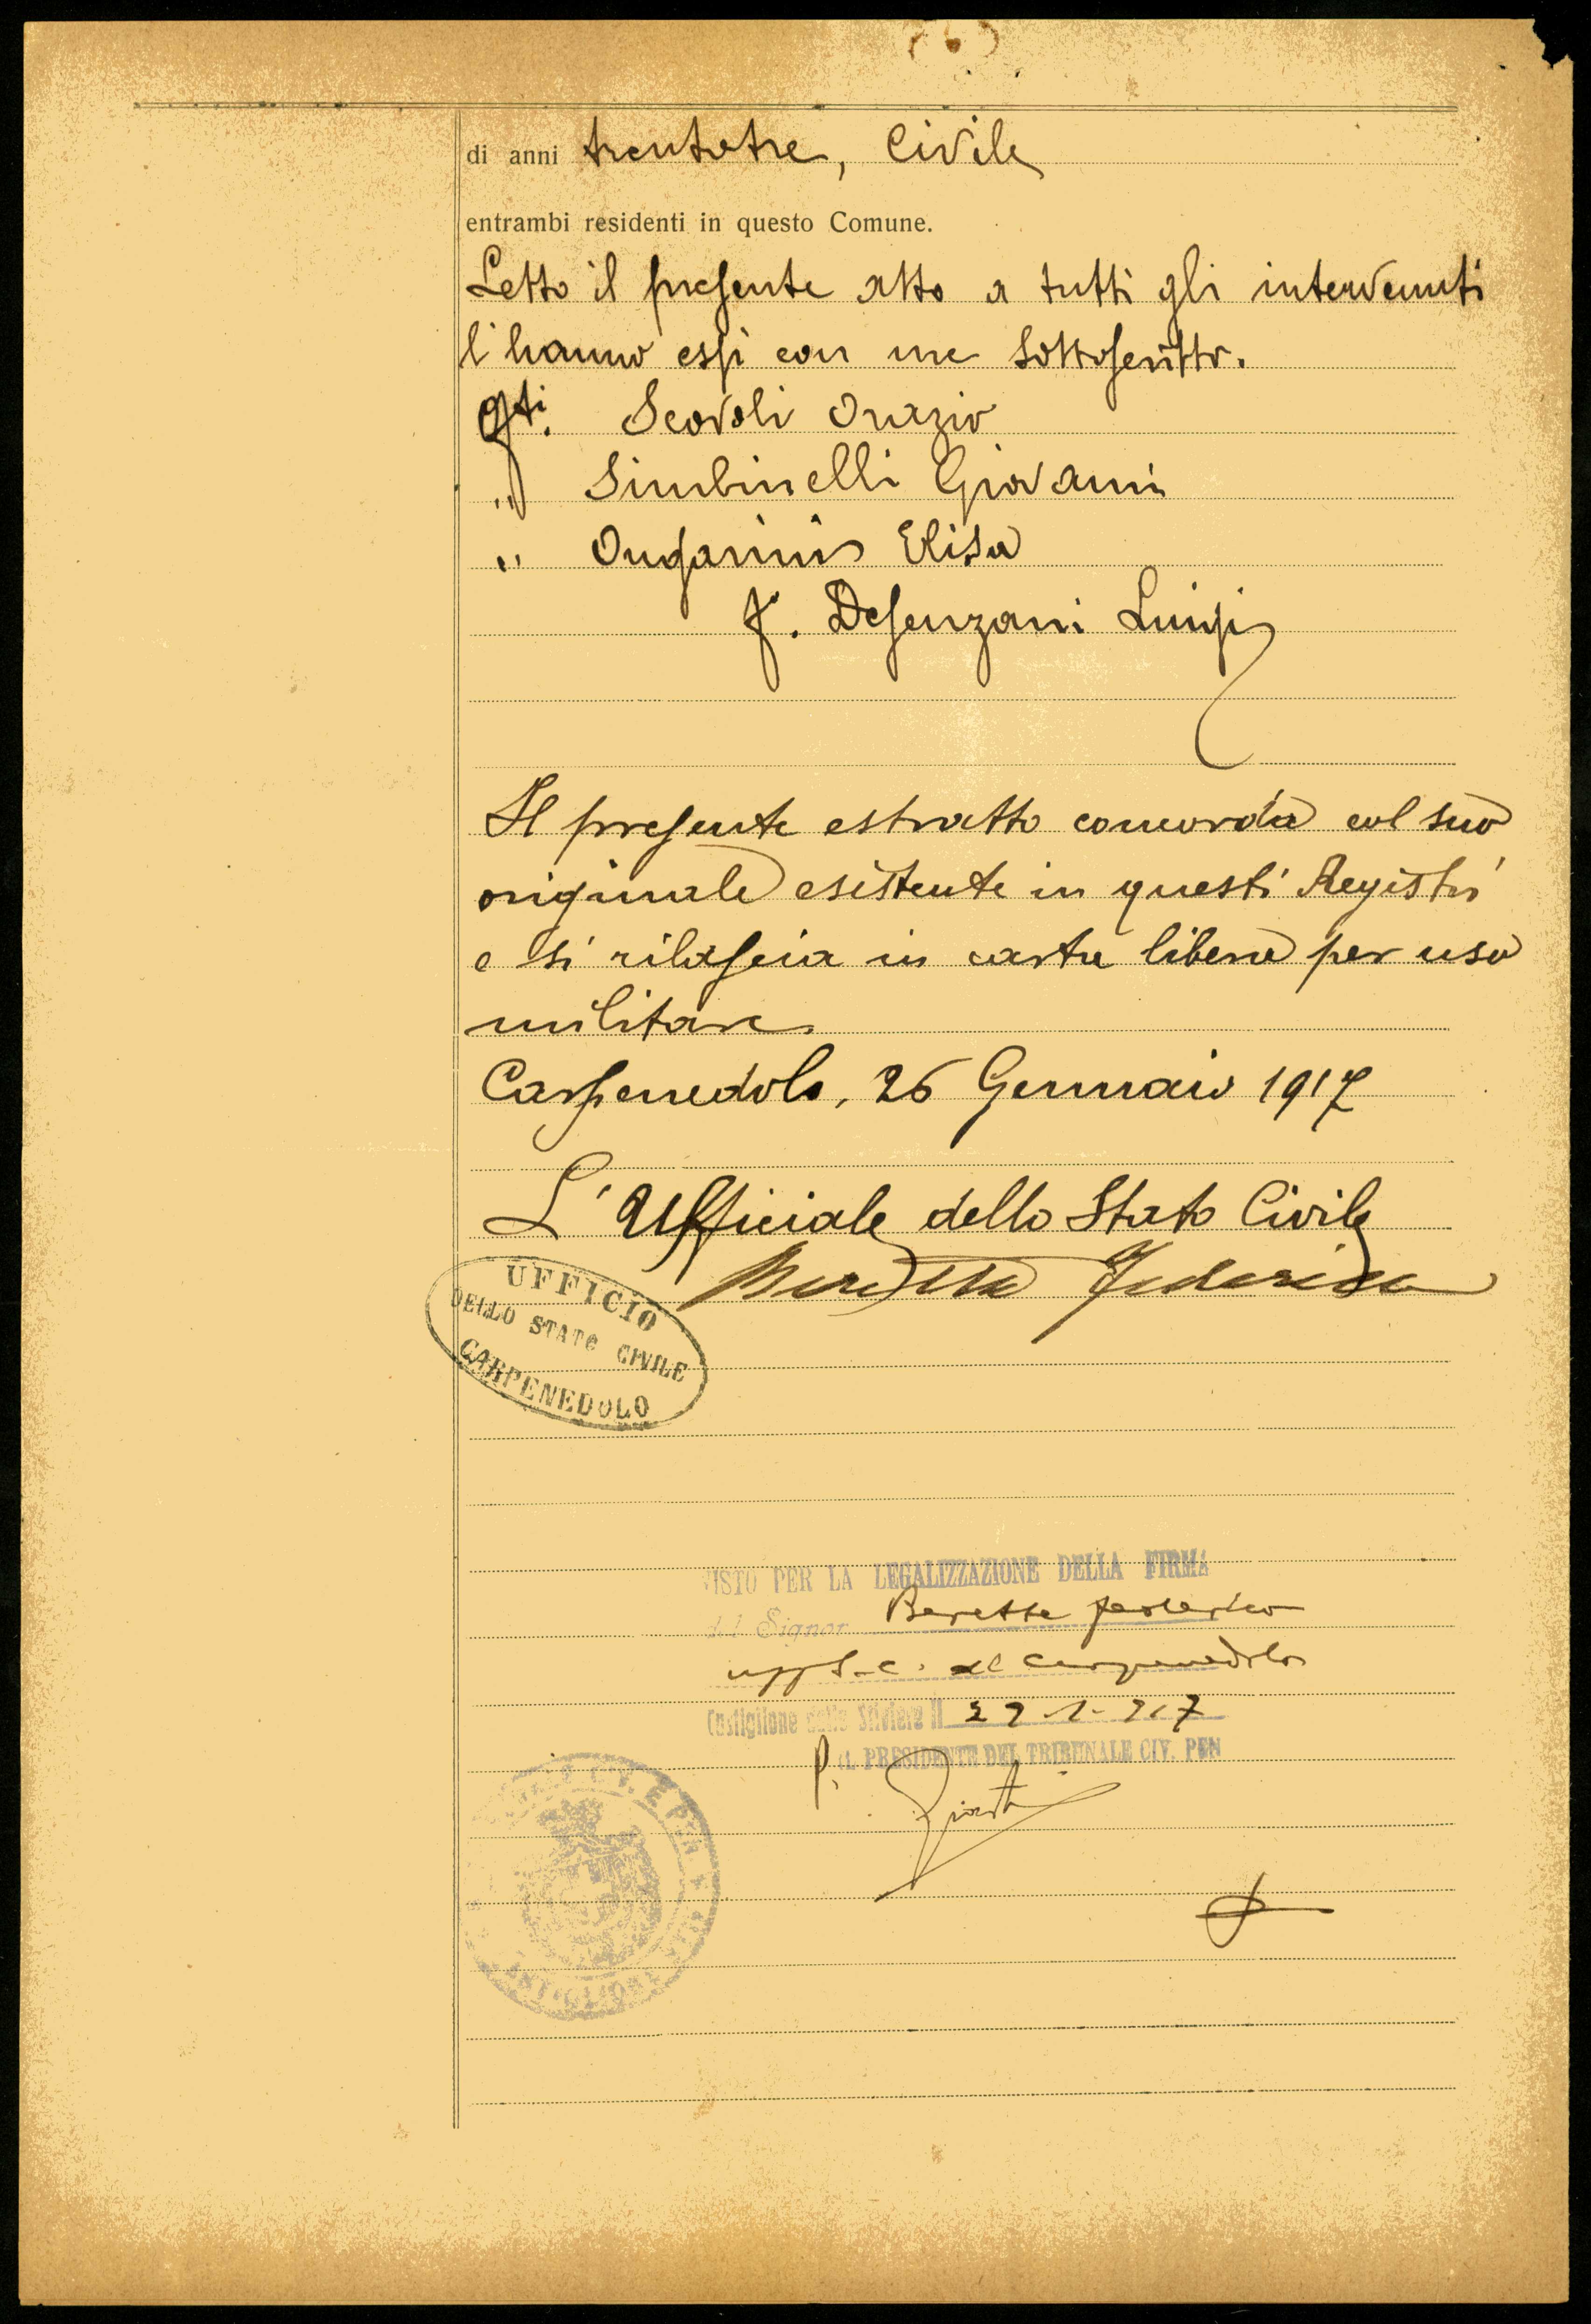 di anni trentatre, Civile
entrambi residenti in questo Comune.
Letto il presente atto a tutti gli intervenuti
l'hanno essi con me sottoscritto.
Scovoli Orazio
" Simbinelli Giovanni
" Ongarinis Elisa
f. Desenzani Luigi
Il presente estratto concorda col suo
originale esistente in questi Registri
e si rilascia in carta libera per uso
militare.
Carpenedolo, 26 Gennaio 1917
L'Ufficiale dello Stato Civile
Beretta Federico
UFFICIO
DELLO STATO CIVILE
CARPENEDOLO
VISTO PER LA LEGALIZZAZIONE DELLA FIRMA
del Signor Beretta Federico
uff S. C. di Carpenedolo
Castiglione delle Stiviere il 29-1-917
P. IL PRESIDENTE DEL TRIBUNALE CIV. PEN